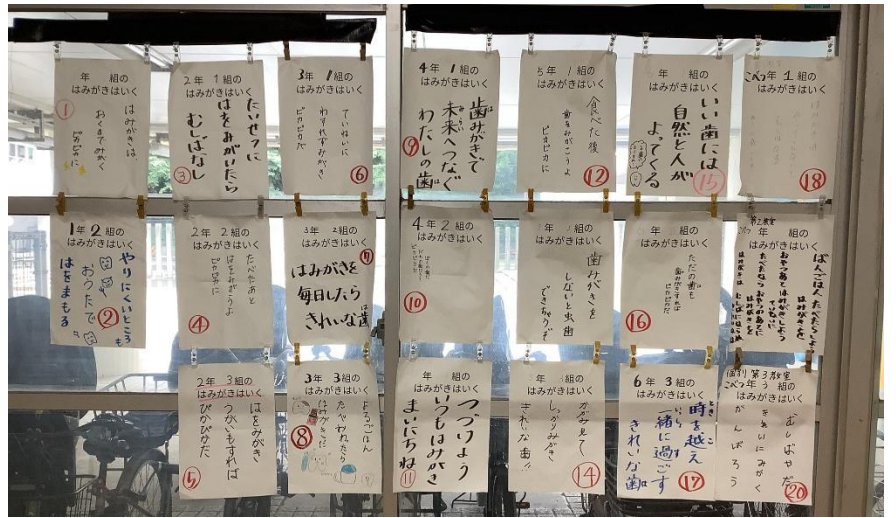 年 組の
はみがきはいく
①
はみがきは
おくまでみがく
ピカピカに
2年 1組の
はみがきはいく
③
たいせつに
はをみがいたら
むしばなし
3年 1組の
はみがきはいく
⑥
ていねいに
わすれずみがき
ピカピカだ
4年 1組の
はみがきはいく
⑨
歯みがきで
未来へつなぐ
わたしの歯
5年 1組の
はみがきはいく
⑫
食べた後
歯をみがこうよ
ピカピカに
年 組の
はみがきはいく
⑮
いい歯には
自然と人が
よってくる
こべつ年 1組の
はみがきはいく
⑱
1年 2組の
はみがきはいく
②
やりにくいところも
おうたで
はをまもる
2年 2組の
はみがきはいく
④
たべたあと
はをみがこうよ
ピカピカに
3年 2組の
はみがきはいく
⑦
はみがきを
毎日したら
きれいな歯
4年 2組の
はみがきはいく
⑩
年 組の
はみがきはいく
歯みがきを
しないと虫歯
できちゃうぞ
年 組の
はみがきはいく
⑯
ただの歯も
歯みがきすれば
ピカピカだ
第2教室
こべつ年 組の
はみがきはいく
ばんごはんたべたらしよう
はみがきを
2年 3組の
はみがきはいく
⑤
はをみがき
うがいもすれば
ぴかぴかだ
3年 3組の
はみがきはいく
⑧
よるごはん
たべおわったら
はみがきだ
年 組の
はみがきはいく
⑪
つづけよう
いつもはみがき
まいにちね
年 組の
はみがきはいく
⑭
かがみ見て
しっかりみがき
きれいな歯!!
6年 3組の
はみがきはいく
⑰
時を越え
一緒に過ごす
きれいな歯
個別 第3教室
こべつ年 3組の
はみがきはいく
⑳
むしばやだ
きれいにみがく
がんばろう